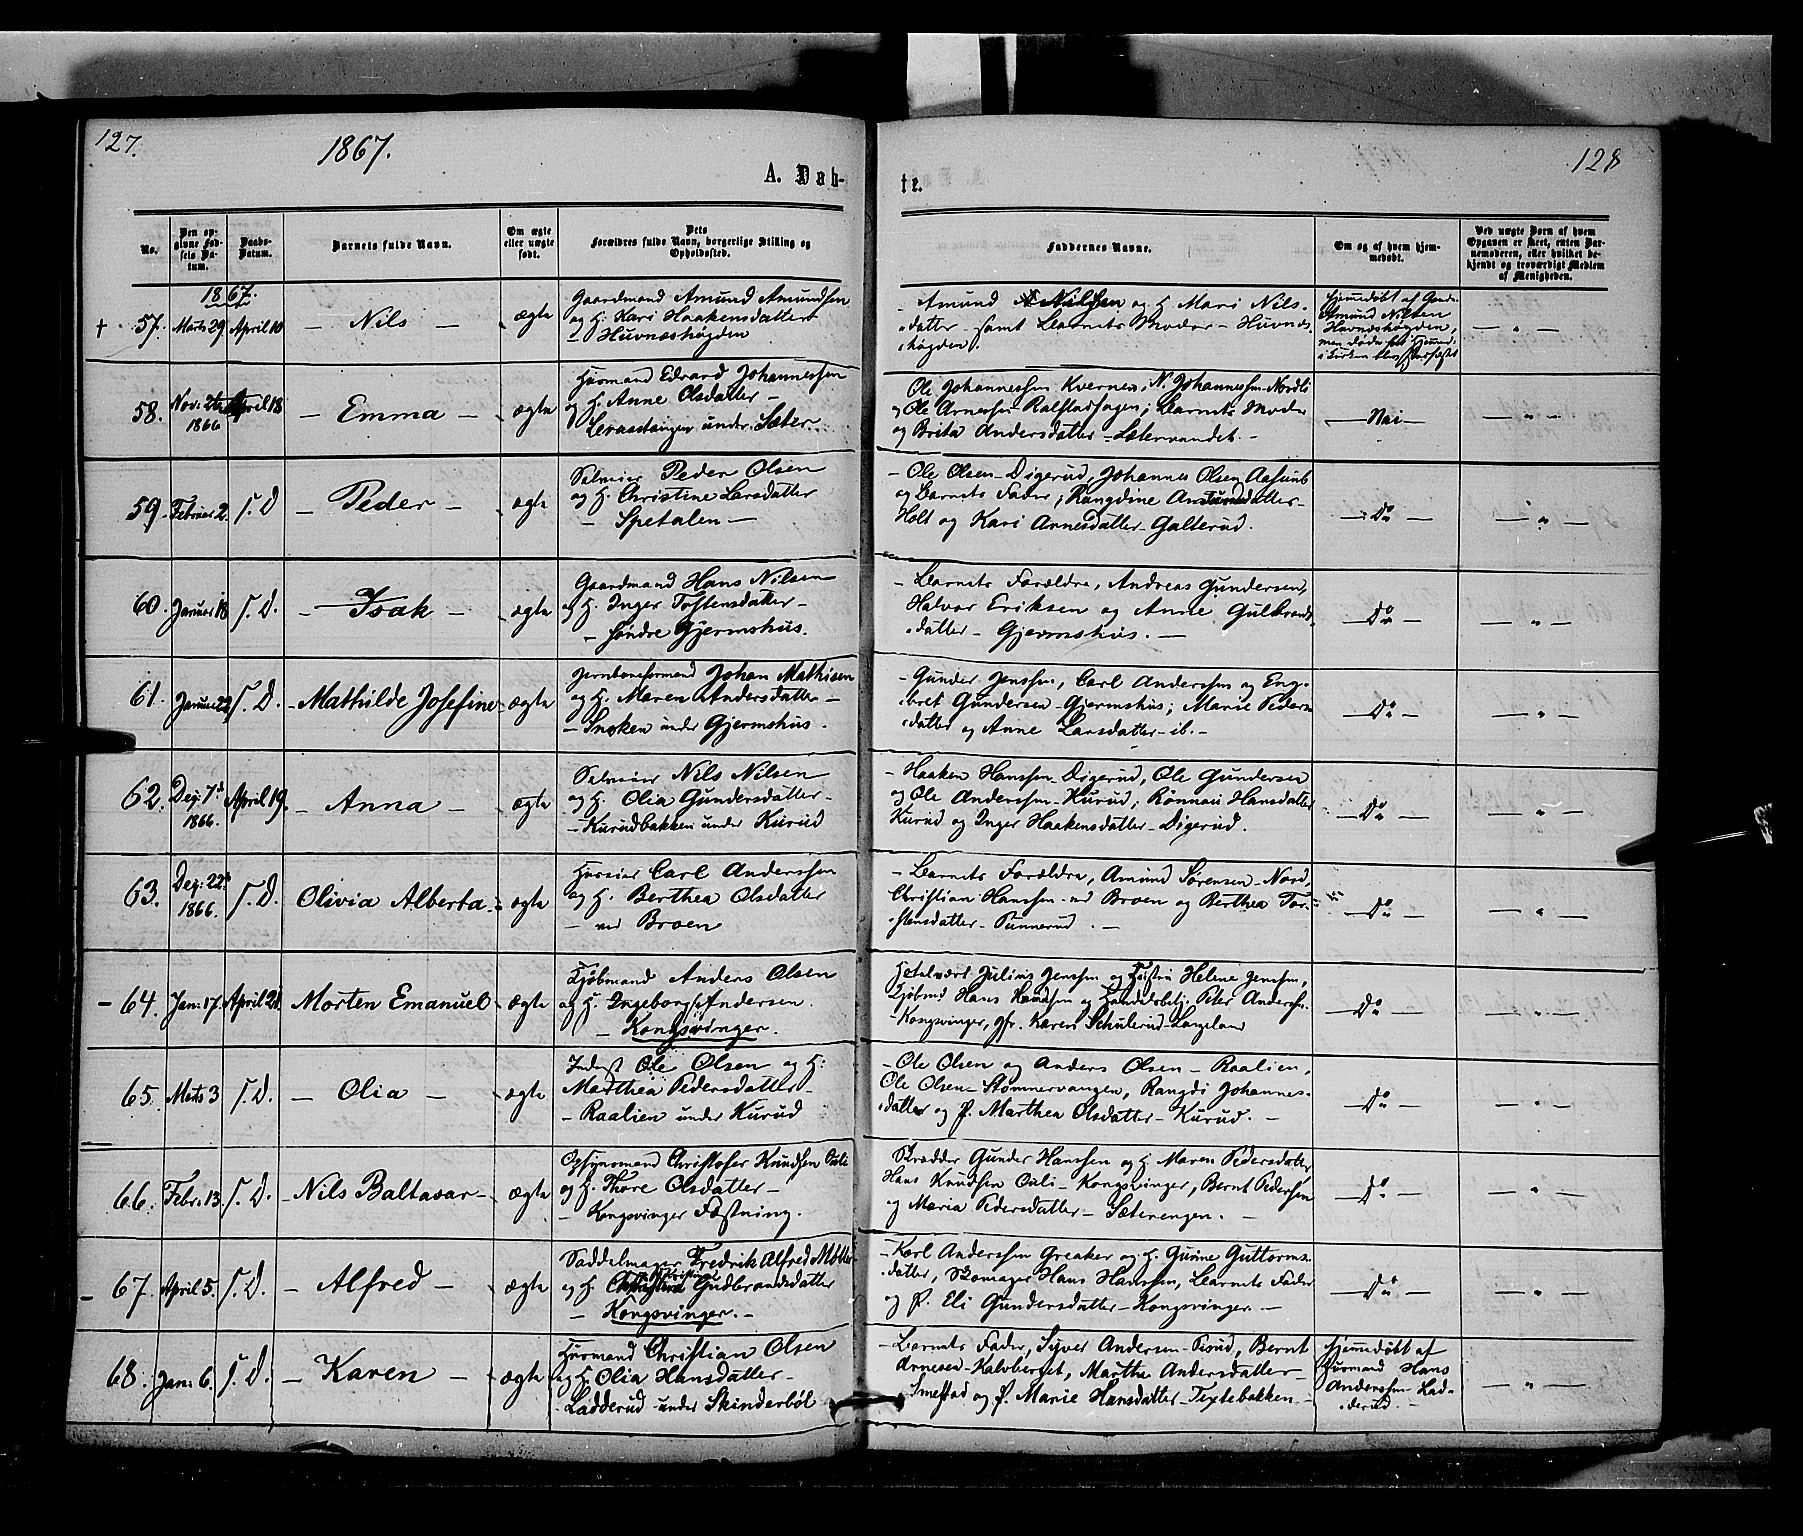 127.
1867.
128
A. Døb-
te.
No.
Den op-
givne Fød-
sels Da-
tum.
Daabs-
Datum.
Barnets fulde Navn.
Om ægte
eller uægte
født.
Dets
Forældres fulde Navn, borgerlige Stilling og
Opholdssted.
Faddernes Navne.
Om og af hvem hjem-
medøbt.
Ved uægte Børn af hvem
Opgaven er skeet, enten Bar-
nemoderen, eller hvilket be-
kjendt og troværdigt Medlem
af Menigheden.
1867.
+ 57. Marts 29 April 10 - Nils - ægte
Gaardmand Amund Amundsen
og H. Kari Haakensdatter
- Huvnæshøgden
Amund Nilsen og H. Mari Nils-
datter samt Barnets Moder - Huvnæs-
høgden.
Hjemmedøbt af
Amund Nilsen
Huvnæshøgden,
- " -
58. Nov: 1866 April 18 - Emma - ægte
Husmand Edvard Johannessen
og H. Anne Olsdatter -
under Sæter.
Ole Johannessen Kvernen, N. Johannessen Nordli
Ole Arnesen - ; Barnets Moder
og Brita Andersdatter - Sætervandet. -
- Nei -
- " -
59. Februar 2. S. D. - Peder - ægte
Selveier Peder Olsen
og H. Christine Larsdatter
- Spetalen -
- Ole Olsen - Digerud, Johannes Olsen Aasum
og Barnets Fader; Rangdine Amundsdatter -
Holt og Kari Arnesdatter - Galterud.
- Do -
- " -
60. Januar 18. S. D. - Isak - ægte
Gaardmand Hans Nilsen
og H. Inger Toftensdatter -
- søndre Gjermshus.
- Barnets Forældre, Andreas Gundersen,
Halvor Eriksen og Anne Gulbrands-
datter - Gjermshus. -
- Do -
- " -
61. Januar 22. S. D. - Mathilde Josefine - ægte
Jernbaneformand Johan Mathisen
og H. Maren Andersdatter -
- Snoken under Gjermshus.
- Gunder Jenssen, Carl Anderssen og Eng-
bret Gundersen - Gjermshus; Marie Peders-
datter og Anne Larsdatter - ib. -
- Do -
- " -
62. Dez: 7d 1866 April 19. - Anna - ægte
Selveier Nils Nilsen
og H. Olia Gundersdatter -
- Kurudbakken under Kurud
- Haaken Hanssen - Digerud, Ole Gundersen
og Ole Anderssen - Kurud; Rønnau Hansdatter
Kurud og Inger Haakensdatter - Digerud.
- Do -
- " -
63. Dez: 22d 1866. S. D. Olivia Alberta - ægte
Huseier Carl Anderssen
og H. Berthea Olsdatter
- ved Broen
- Barnets Forældre, Amund Sørensen - Nord,
Christian Hanssen - ved Broen og Berthea Tor-
stensdatter - Punnerud. -
- Do -
- " -
- 64. Jan: 17. April 21. Morten Emanuel - ægte
Kjøbmand Anders Olsen
og H. Ingeborg Andersen.
- Kongsvinger.
Hotelvært Julius Jenssen og Hustru Helene Jenssen,
Kjøbmd Hans Hanssen og Handelsbetj. Peter Anderssen
- Kongsvinger, Jfr. Karen Schulerud - Langeland
- Do -
- " -
65. Marts 3 S. D. - Olia - ægte
Inderst Ole Olsen og H:
Marthea Pedersdatter
- Raalien under Kurud
- Ole Olsen og Anders Olsen - Raalien,
Ole Olsen - Stømnervangen, Rangdi Johannes-
datter og P. Marthea Olsdatter - Kurud. -
- Do -
- " -
66. Febr: 13. S. D. - Nils Baltasar - ægte
Opsynsmand Christofer Knudsen Culi
og H. Thore Olsdatter -
- Kongsvinger Fæstning.
Skrædder Gunder Hanssen og H. Maren Pedersdatter,
Hans Knudsen Culi - Kongsvinger, Bernt Pedersen
og Maria Pedersdatter - Sæterengen. -
- Do -
- " -
- 67. April 5. S. D. - Alfred - ægte
Saddelmager Fredrik Alfred Møller
og H. Christine Gudbrandsdatter
- Kongsvinger. -
- Karl Anderssen Greaker og H. Gurine Guttorms-
datter, Skomager Hans Hanssen, Barnets Fader
og P. Eli Gundersdatter - Kongsvinger. -
- Do -
- " -
68. Jan: 6. S. D. - Karen - ægte
Husmand Christian Olsen
og H. Olia Hansdatter -
- Ladderud under Skinderbøl
- Barnets Fader, Syver Andersen - , Bernt
Arnesen - Kalvberget, Marthe Andersdatter -
Smestad og P. Marie Hansdatter - Textebakken. -
Hjemmedøbt af
Husmand Hans
Anderssen - Lad-
derud -
- " -